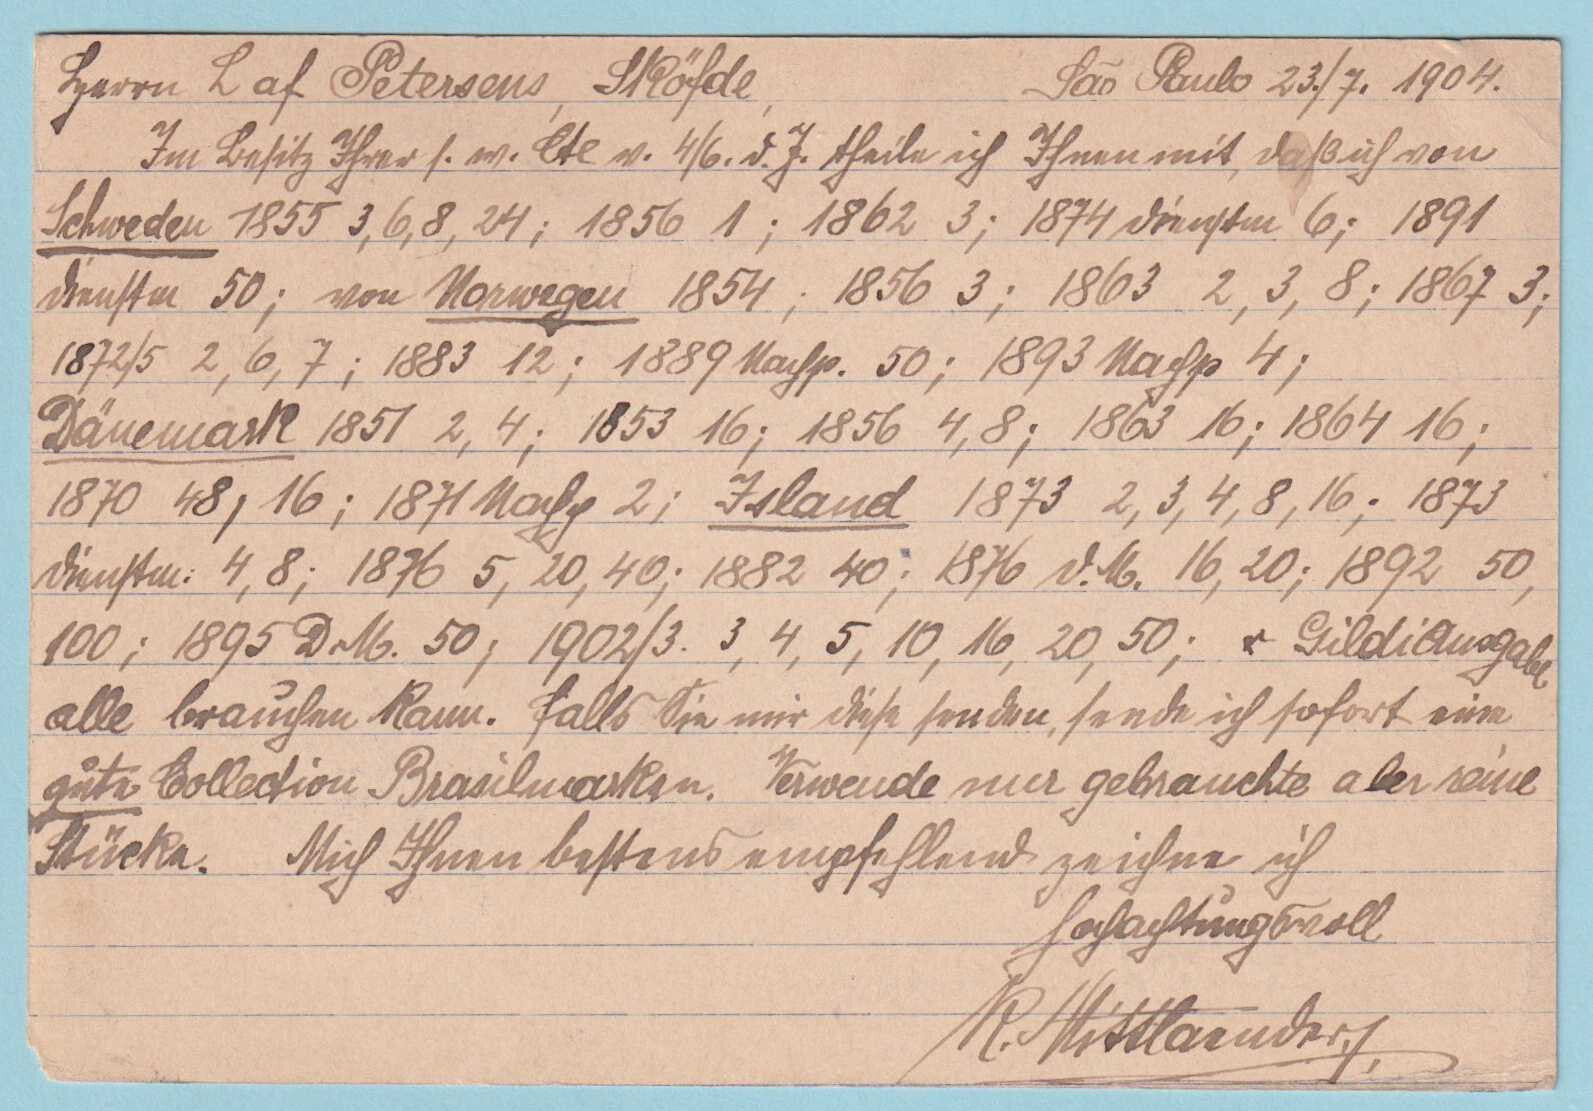 Herrn L af Petersens, Sköfde, São Paulo 23./7. 1904.
Im Besitz Ihrer s. w. Cte v. 4/6. d. J. theile ich Ihnen mit, daß ich von
Schweden 1855 3, 6, 8, 24; 1856 1; 1862 3; 1874 dienstm 6; 1891
dienstm 50; von Norwegen 1854; 1856 3; 1863 2, 3, 8; 1867 3;
1872/5 2, 6, 7; 1883 12; 1889 Nachp. 50; 1893 Nachp 4;
Dänemark 1851 2, 4; 1853 16; 1856 4, 8; 1863 16; 1864 16;
1870 48, 16; 1871 Nachp 2; Island 1873 2, 3, 4, 8, 16; 1873
dienstm: 4, 8; 1876 5, 20, 40; 1882 40; 1876 d. M. 16, 20; 1892 50,
100; 1895 D. M. 50; 1902/3. 3, 4, 5, 10, 16, 20, 50; Gildi Ausgabe
alle brauchen kann. Falls Sie mir diese senden, sende ich sofort eine
gute Collection Brasilmarken. Verwende nur gebrauchte aber reine
Stücke. Mich Ihnen bestens empfehlend zeichne ich
Hochachtungsvoll